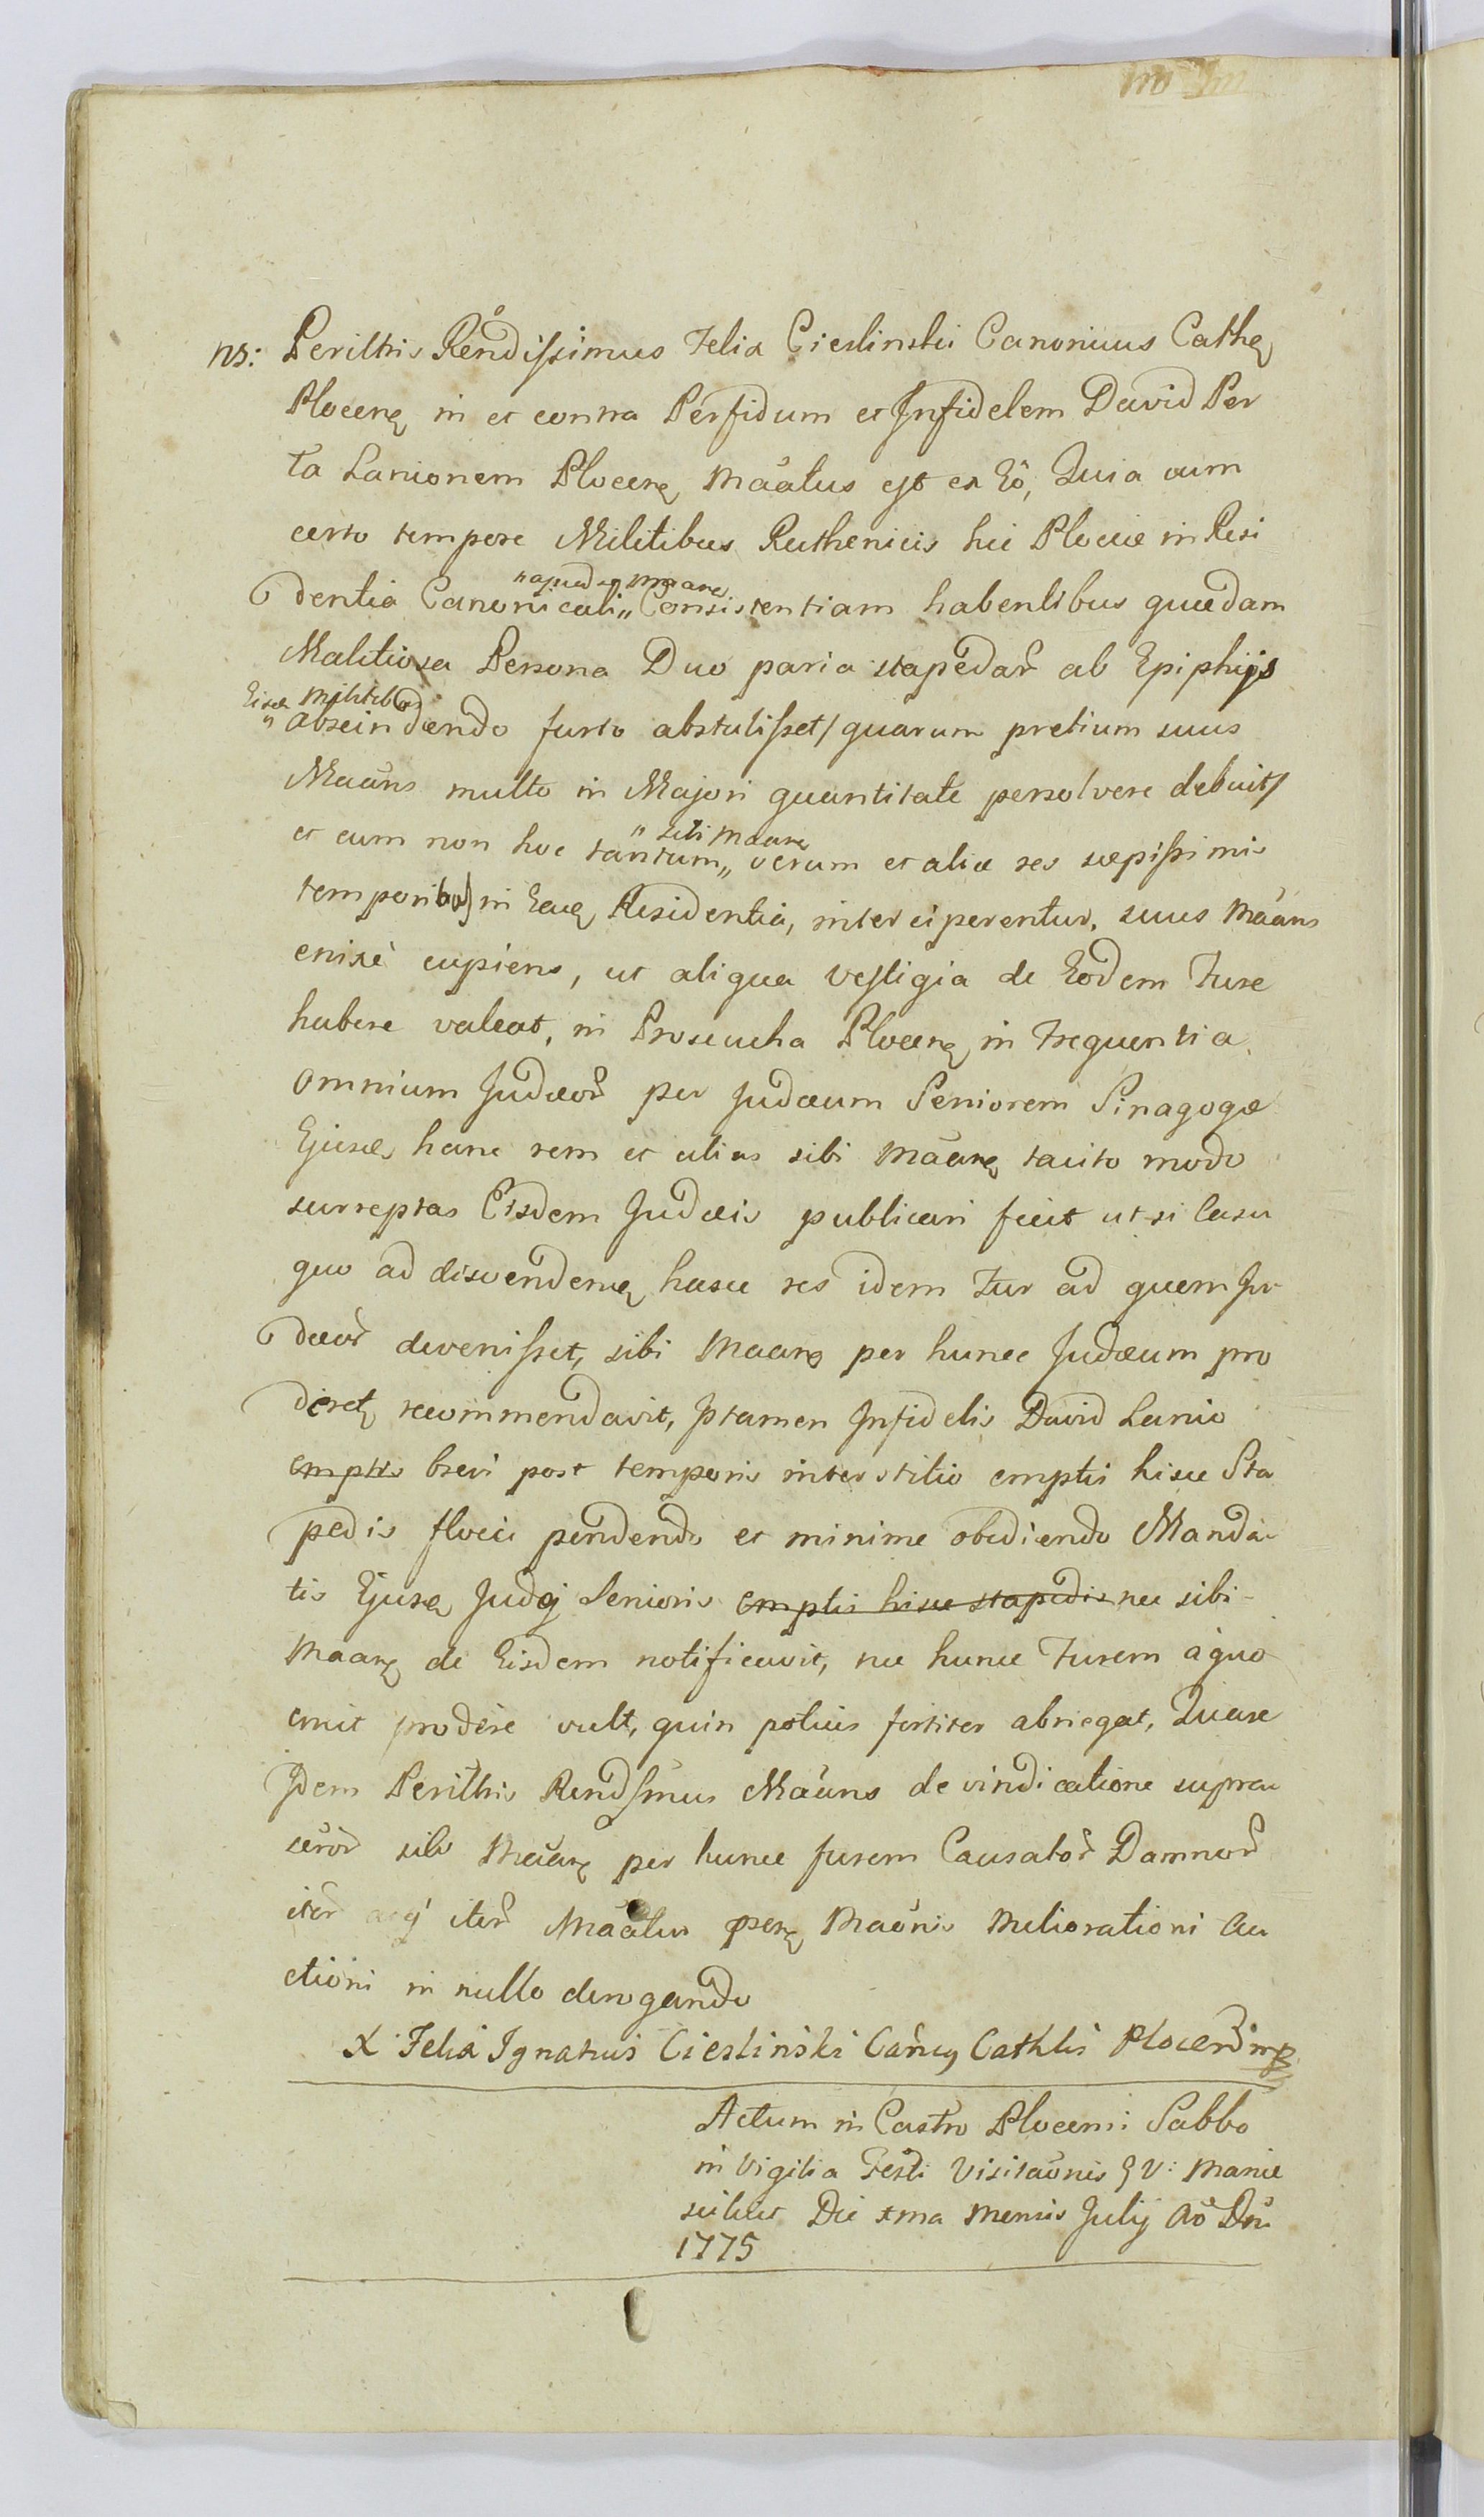 ns: Perilltris Rendissimus Felix Cieslinski Canonicus Cathe
Plocen in et contra Perfidum et Infidelem David Per
ta Lanionem Plocen Maatus est ex Eo, Quia cum
certo tempore Militibus Ruthenicis hic Plociæ in Resi
"apud se Maane
dentia Canonicali" Consistentiam habentibus quædam
Malitiosa Persona Duo paria stapedar ab Ephippijs
Eisd Militib
"abscindendo furto abstulisset/ quarum pretium suus
Maans multo in Majori quantitate persolvere debuit/
" sibi Maane
et cum non hoc tantum" verum et aliæ res sæpissimis
temporibus in Eade Residentia, interciperentur, suus Maans
enixè cupiens, ut aliqua vestigia de Eodem Fure
habere valeat, in Proseucha Plocen in Frequentia
omnium Judæor per Judæum Seniorem Sinagogæ
Ejusd hanc rem et alias sibi Maane tacito modo
surreptas Eisdem Judæis publicari fecit ut si Casu
quo ad divendend hasce res idem Fur ad quem Ju
dæor devenisset, sibi Maane per hunce Judæum pro
deret recommendavit, Istamen Infidelis David Lanio
emptis brevi post temporis interstitio emptis hisce Sta
pedis flocci pendendo et minime obediendo Manda
tis Ejusd Judæj Senioris emptis hisce stapedis nec sibi
Maane de Eisdem notificavit, nec hunce Furem a quo
emit prodere vult, quin potius fortiter abnegat, Quare
Idem Perilltris Rendsmus Maans de vindicatione supra
sibi Maane per hunce furem Causator Damnor
iter iter Maatur Maonis Meliorationi Au
ctioni in nullo derogando
X Felix Ignatius Ciesliński Cancus Cathlis Plocen mp
Actum in Castro Plocensi Sabbo
in Vigilia Festi Visitaonis B V: Mariæ
scilicet Die 1ma Mensis Julij Ao Dni
1775